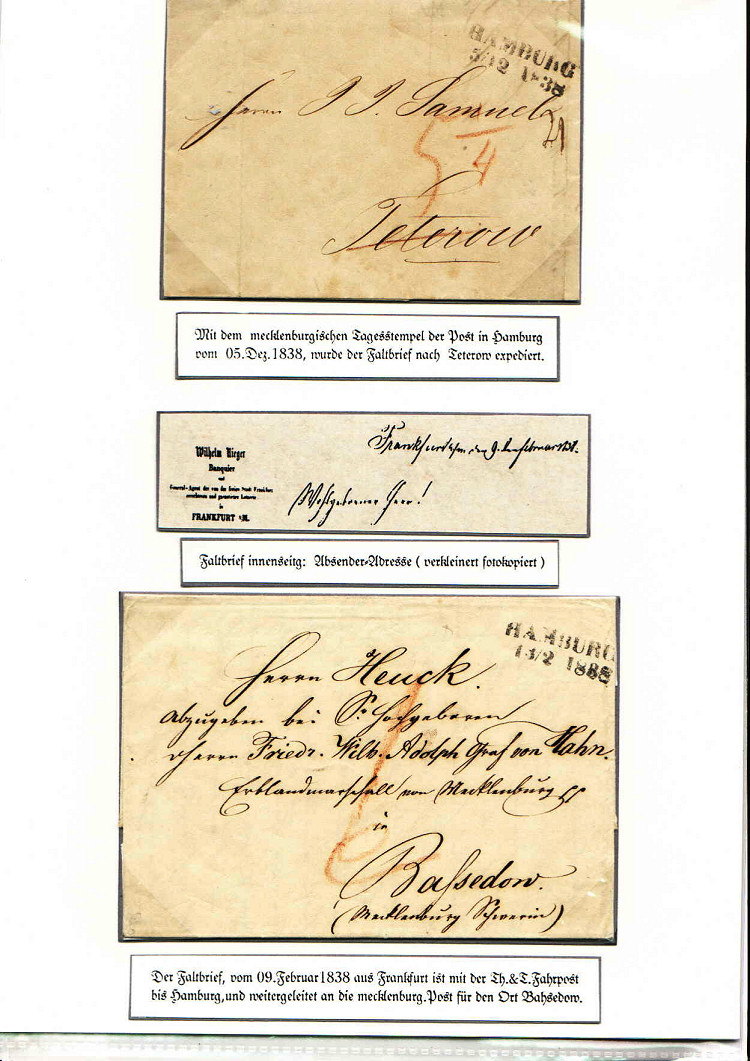 HAMBURG
5/12 1838
Herrn J. J. Samuel
5 1/4
Teterow
Mit dem mecklenburgischen Tagesstempel der Post in Hamburg
vom 05.Dez.1838, wurde der Faltbrief nach Teterow expediert.
Wilhelm Rieger
Banquier
und
General-Agent der von der freien Stadt Frankfurt
errichteten und garantirten Lotterie
in
FRANKFURT a/M.
Frankfurt a/m den 9. Februar 1838.
Wohlgeborner Herr!
Faltbrief innenseitg: Absender-Adresse ( verkleinert fotokopiert )
HAMBURG
13/2 1838
Herrn Heuck.
Abzugeben bei Sr. Hochgeboren
Herrn Friedr. Wilh. Adolph Graf von Hahn.
Erblandmarschall von Mecklenburg
in
Baßedow.
(Mecklenburg Schwerin)
Der Faltbrief, vom 09.Februar 1838 aus Frankfurt ist mit der Th.&T.Fahrpost
bis Hamburg,und weitergeleitet an die mecklenburg.Post für den Ort Bahsedow.